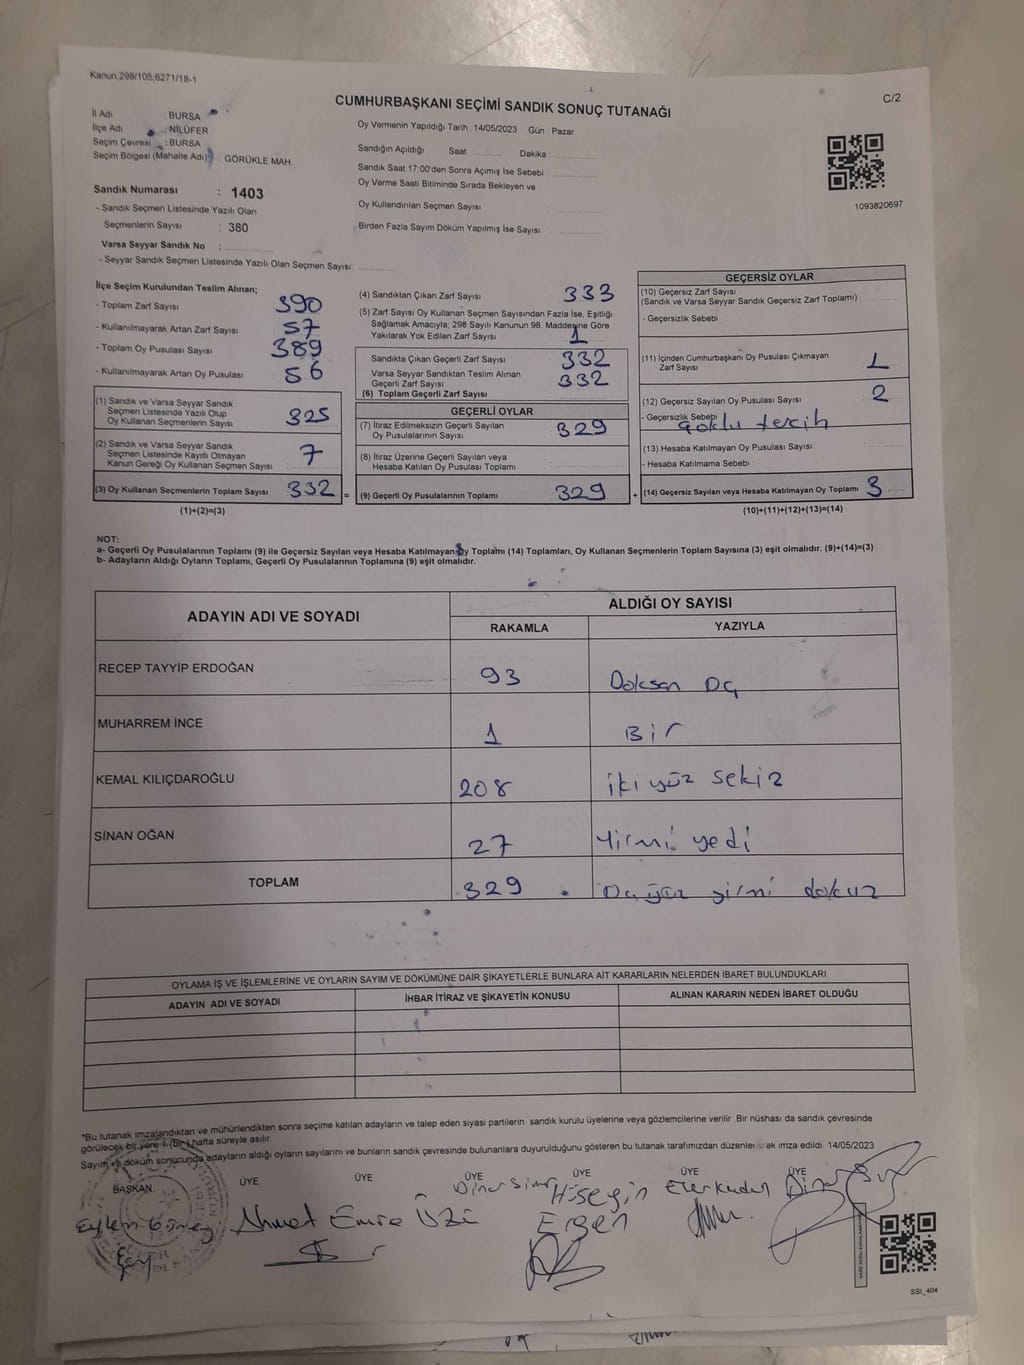 Kanun,298/105,6271/18-1
CUMHURBAŞKANI SEÇİMİ SANDIK SONUÇ TUTANAĞI
C/2
İl Adı BURSA
İlçe Adı : NİLÜFER
Seçim Çevresi : BURSA
Seçim Bölgesi (Mahalle Adı) : GÖRÜKLE MAH.
Sandık Numarası : 1403
- Sandık Seçmen Listesinde Yazılı Olan
Seçmenlerin Sayısı : 380
Varsa Seyyar Sandık No :
- Seyyar Sandık Seçmen Listesinde Yazılı Olan Seçmen Sayısı:
Oy Vermenin Yapıldığı Tarih : 14/05/2023 Gün : Pazar
Sandığın Açıldığı Saat Dakika
Sandık Saat 17:00'den Sonra Açımış İse Sebebi :
Oy Verme Saati Bitiminde Sırada Bekleyen ve
Oy Kullandırılan Seçmen Sayısı :
Birden Fazla Sayım Döküm Yapılmış İse Sayısı :
1093820697
İlçe Seçim Kurulundan Teslim Alınan;
- Toplam Zarf Sayısı 390
- Kullanılmayarak Artan Zarf Sayısı 57
- Toplam Oy Pusulası Sayısı 389
- Kullanılmayarak Artan Oy Pusulası 56
(1) Sandık ve Varsa Seyyar Sandık
Seçmen Listesinde Yazılı Olup
Oy Kullanan Seçmenlerin Sayısı 325
(2) Sandık ve Varsa Seyyar Sandık
Seçmen Listesinde Kayıtlı Olmayan
Kanun Gereği Oy Kullanan Seçmen Sayısı 7
(3) Oy Kullanan Seçmenlerin Toplam Sayısı 332 =
(1)+(2)=(3)
(4) Sandıktan Çıkan Zarf Sayısı 333
(5) Zarf Sayısı Oy Kullanan Seçmen Sayısından Fazla İse, Eşitliği
Sağlamak Amacıyla; 298 Sayılı Kanunun 98. Maddesine Göre
Yakılarak Yok Edilen Zarf Sayısı 1
Sandıkta Çıkan Geçerli Zarf Sayısı 332
Varsa Seyyar Sandıktan Teslim Alınan
Geçerli Zarf Sayısı 332
(6) Toplam Geçerli Zarf Sayısı
GEÇERLİ OYLAR
(7) İtiraz Edilmeksizin Geçerli Sayılan
Oy Pusulalarının Sayısı 329
(8) İtiraz Üzerine Geçerli Sayılan veya
Hesaba Katılan Oy Pusulası Toplamı
(9) Geçerli Oy Pusulalarının Toplamı 329 +
GEÇERSİZ OYLAR
(10) Geçersiz Zarf Sayısı
(Sandık ve Varsa Seyyar Sandık Geçersiz Zarf Toplamı)
- Geçersizlik Sebebi :
(11) İçinden Cumhurbaşkanı Oy Pusulası Çıkmayan
Zarf Sayısı 1
(12) Geçersiz Sayılan Oy Pusulası Sayısı 2
- Geçersizlik Sebebi Çoklu tercih
(13) Hesaba Katılmayan Oy Pusulası Sayısı
- Hesaba Katılmama Sebebi :
(14) Geçersiz Sayılan veya Hesaba Katılmayan Oy Toplamı 3
(10)+(11)+(12)+(13)=(14)
NOT:
a- Geçerli Oy Pusulalarının Toplamı (9) ile Geçersiz Sayılan veya Hesaba Katılmayan Oy Toplamı (14) Toplamları, Oy Kullanan Seçmenlerin Toplam Sayısına (3) eşit olmalıdır. (9)+(14)=(3)
b- Adayların Aldığı Oyların Toplamı, Geçerli Oy Pusulalarının Toplamına (9) eşit olmalıdır.
ADAYIN ADI VE SOYADI ALDIĞI OY SAYISI
RAKAMLA YAZIYLA
RECEP TAYYİP ERDOĞAN 93 Doksan Üç
MUHARREM İNCE 1 Bir
KEMAL KILIÇDAROĞLU 208 iki yüz sekiz
SİNAN OĞAN 27 Yirmi yedi
TOPLAM 329 Üçyüz yirmi dokuz
OYLAMA İŞ VE İŞLEMLERİNE VE OYLARIN SAYIM VE DÖKÜMÜNE DAİR ŞİKAYETLERLE BUNLARA AİT KARARLARIN NELERDEN İBARET BULUNDUKLARI
ADAYIN ADI VE SOYADI İHBAR İTİRAZ VE ŞİKAYETİN KONUSU ALINAN KARARIN NEDEN İBARET OLDUĞU
*Bu tutanak imzalandıktan ve mühürlendikten sonra seçime katılan adayların ve talep eden siyasi partilerin sandık kurulu üyelerine veya gözlemcilerine verilir. Bir nüshası da sandık çevresinde
görülecek bir yere 1 (bir) hafta süreyle asılır.
Sayım ve döküm sonucunda adayların aldığı oyların sayılarını ve bunların sandık çevresinde bulunanlara duyurulduğunu gösteren bu tutanak tarafımızdan imza edildi. 14/05/2023
BAŞKAN ÜYE ÜYE ÜYE ÜYE ÜYE ÜYE
Ahmet Emre Hüseyin
SSI_404